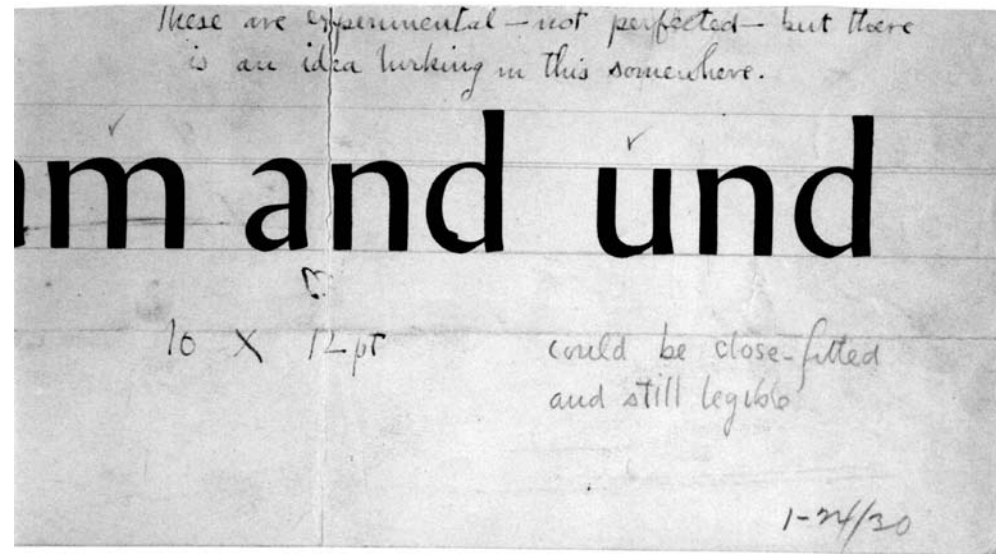 These are experimental — not perfected — but there
is an idea lurking in this somewhere.
am and und
10 X 12 pt
could be close-fitted
and still legible
1-24/30